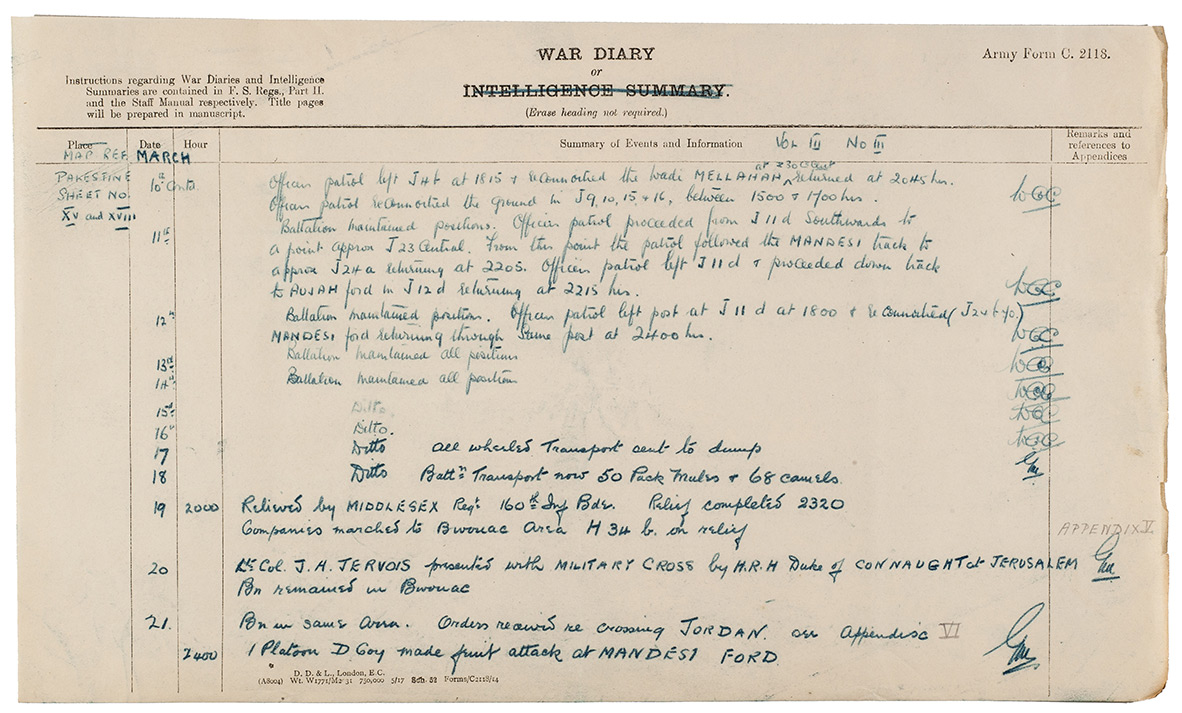 WAR DIARY
or
INTELLIGENCE SUMMARY.
(Erase heading not required.)
Army Form C. 2118.
Instructions regarding War Diaries and Intelligence
Summaries are contained in F. S. Regs., Part II.
and the Staff Manual respectively. Title pages
will be prepared in manuscript.
Place Date Hour Summary of Events and Information VOL III NO III Remarks and references to Appendices
MAP REF MARCH
PALESTINE
SHEET NO.
XV and XVIII
10th Contd. Officers patrol left J4b at 1815 & reconnoitred the wadi MELLAHAH returned at 2045 hrs.
Officers patrol reconnoitred the ground in J9, 10, 15, & 16, between 1500 & 1700 hrs.
11th Battalion maintained positions. Officers patrol proceeded from J11d Southwards to
a point approx J23 Central. From this point the patrol followed the MANDESI track to
approx J24a returning at 2205. Officers patrol left J11d & proceeded down track
to AUJAH ford in J12d returning at 2215 hrs.
12th Battalion maintained positions. Officers patrol left post at J11d at 1800 & reconnoitred
MANDESI ford returning through same post at 2400 hrs.
13th Battalion maintained all positions
14th Battalion maintained all positions
15th Ditto.
16th Ditto.
17 Ditto all wheeled Transport sent to dump
18 Ditto Battn Transport now 50 Pack Mules & 68 camels.
19 2000 Relieved by MIDDLESEX Regt 160th Inf Bde. Relief completed 2320
Companies marched to Bivouac Area H34b. on relief
APPENDIX V
20 Lt Col. J.A. JERVOIS presented with MILITARY CROSS by H.R.H Duke of CONNAUGHT at JERUSALEM
Bn remained in Bivouac
21. Bn in same area. Orders received re crossing JORDAN. see Appendix VI
2400 1 Platoon D Coy made feint attack at MANDESI FORD.
D. D. & L., London, E.C.
(A8004) Wt. W1771/M2 31 750,000 5/17 Sch. 52 Forms/C2118/14